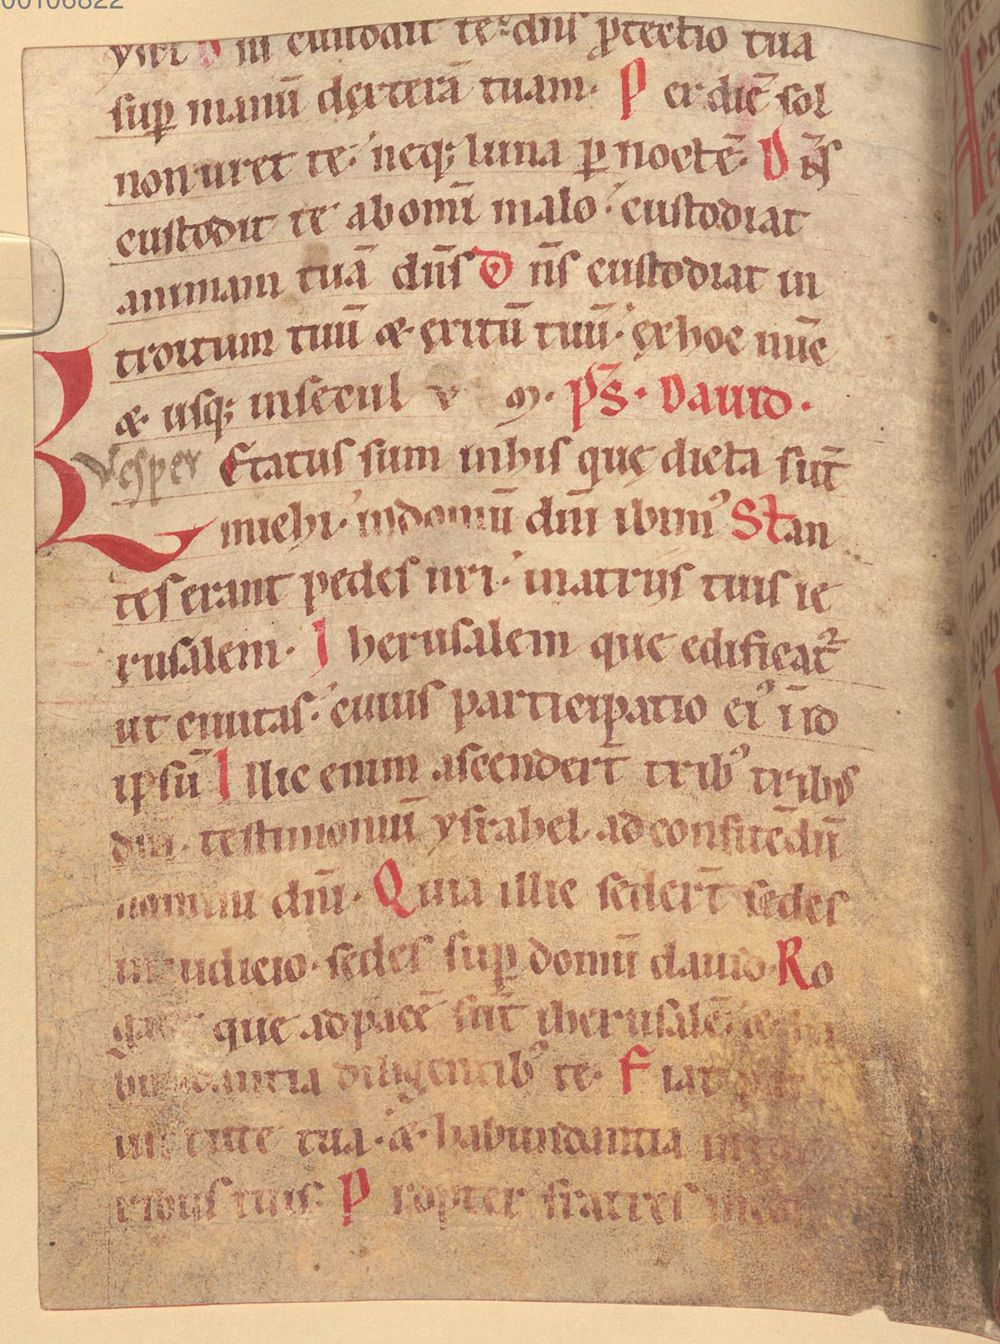 00106822
ysrl D n̄s custodit te· dn̄s ꝓtectio tua
suꝑ manū dexterā tuam· P er diē sol
non uret te· neq; luna ꝑ noctē· D n̄s
custodit te ab om̄i malo· custodiat
animam tuā dn̄s D n̄s custodiat in
troitum tuū & exitū tuū· ex hoc nūc
& usq; in secul v m· ps̄· Dauid·
Vesper
L Etatus sum in his quę dicta sūt
michi· in domū dn̄i ibimꝰ Stan
tes erant pedes nr̄i· in atrijs tuis ie
rusalem· I herusalem que edificat᷑
ut ciuitas· cuius participatio eiꝰ ī id
ipsū I llic enim ascendert̄ tribꝰ tribus
dn̄i· testimoniū ysrahel· ad confitēdū
nomini dn̄i· Q uia illic sedert̄ sedes
in iudicio· sedes suꝑ domū dauid· Ro
gate que ad pacē sūt iherusalē· & ha
bundantia diligentibꝰ te· F iat pax
in uirtute tua· & habundantia in tur
ribus tuis· P ropter fratres meos